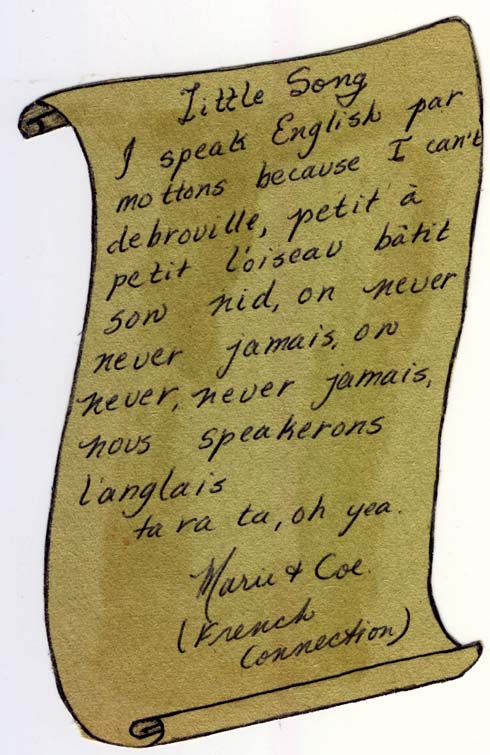 Little Song
I speak English par
mottons because I can't
debrouille, petit à
petit l'oiseau bâtit
son nid, on never
never jamais, on
never, never jamais,
nous speakerons
l'anglais
ta ra ta, oh yea.
Marie & Coe.
(French
Connection)